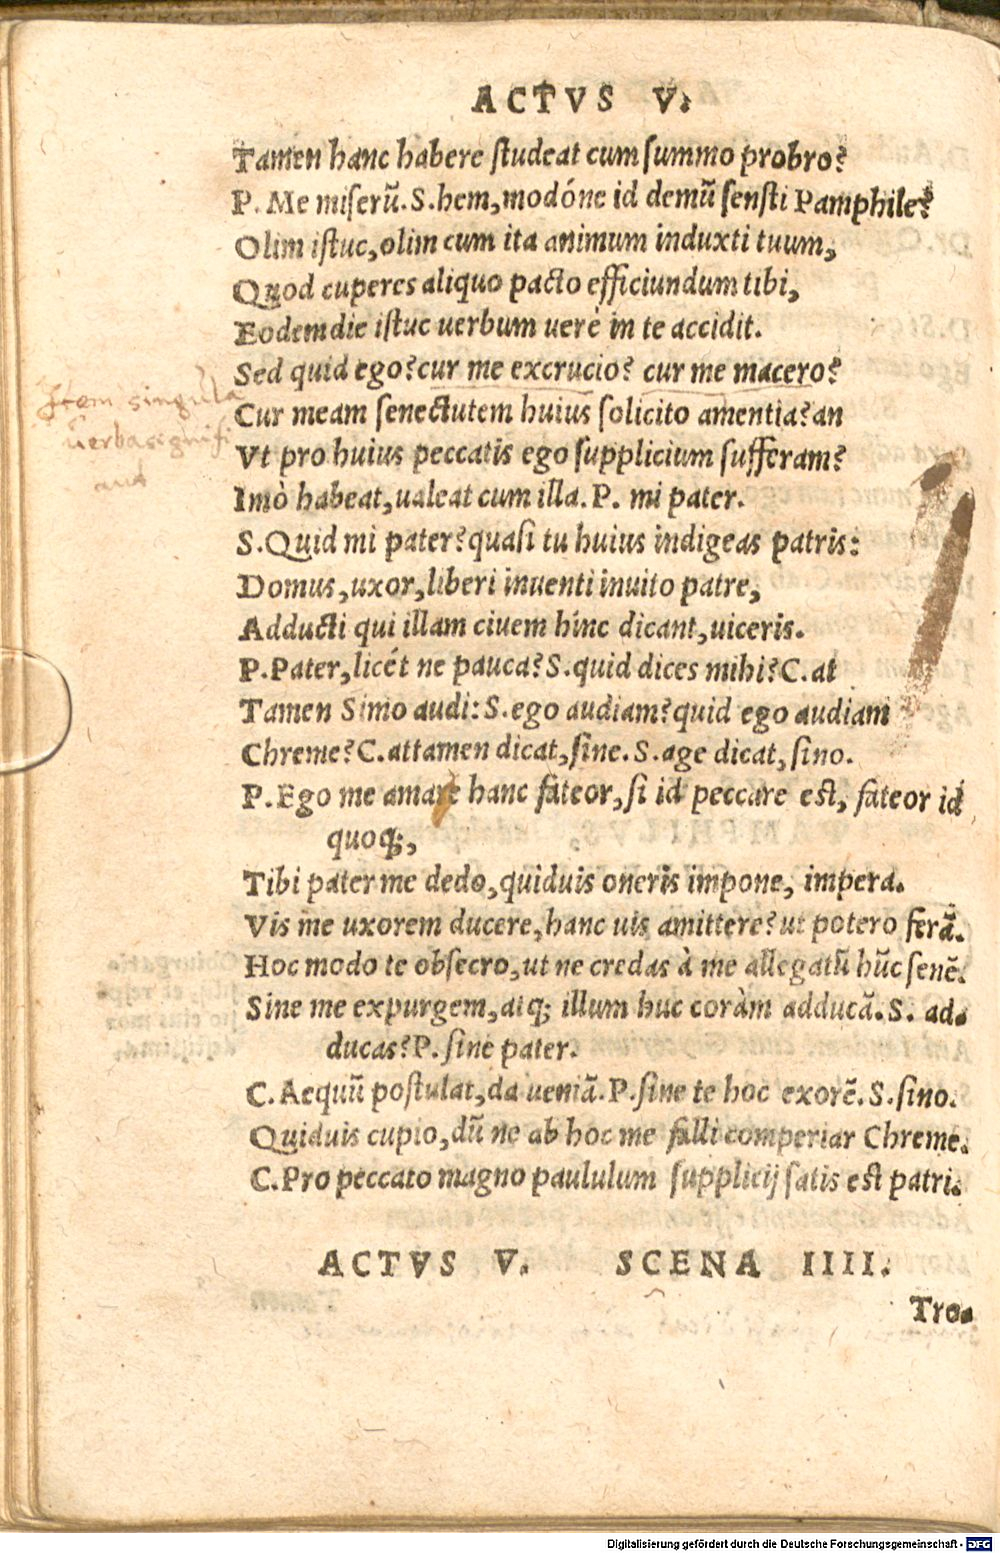 ACTVS V.
Tamen hanc habere ſtudeat cum ſummo probro?
P. Me miſerũ. S. hem, modóne id demũ ſenſti Pamphile?
Olim iſtuc, olim cum ita animum induxti tuum,
Quod cuperes aliquo pacto efficiundum tibi,
Eodem die iſtuc uerbum uerè in te accidit.
Sed quid ego? cur me excrucio? cur me macero?
Cur meam ſenectutem huius ſolicito amentia? an
Vt pro huius peccatis ego ſupplicium ſufferam?
Imò habeat, ualeat cum illa. P. mi pater.
S. Quid mi pater? quaſi tu huius indigeas patris:
Domus, uxor, liberi inuenti inuito patre,
Adducti qui illam ciuem hinc dicant, uiceris.
P. Pater, licét ne pauca? S. quid dices mihi? C. at
Tamen Simo audi: S. ego audiam? quid ego audiam
Chreme? C. attamen dicat, ſine. S. age dicat, ſino.
P. Ego me amare hanc fateor, ſi id peccare eſt, fateor id
quoq;,
Tibi pater me dedo, quiduis oneris impone, impera.
Vis me uxorem ducere, hanc uis amittere? ut potero ferã.
Hoc modo te obſecro, ut ne credas à me allegatũ hũc ſenẽ.
Sine me expurgem, atq; illum huc coràm adducã. S. ad-
ducas? P. ſine pater.
C. Aequũ poſtulat, da ueniã. P. ſine te hoc exorẽ. S. ſino.
Quiduis cupio, dũ ne ab hoc me falli comperiar Chreme.
C. Pro peccato magno paululum ſupplicij ſatis eſt patri.
ACTVS V. SCENA IIII.
Tro-
Item singula
uerba signifi
Digitalisierung gefördert durch die Deutsche Forschungsgemeinschaft - DFG